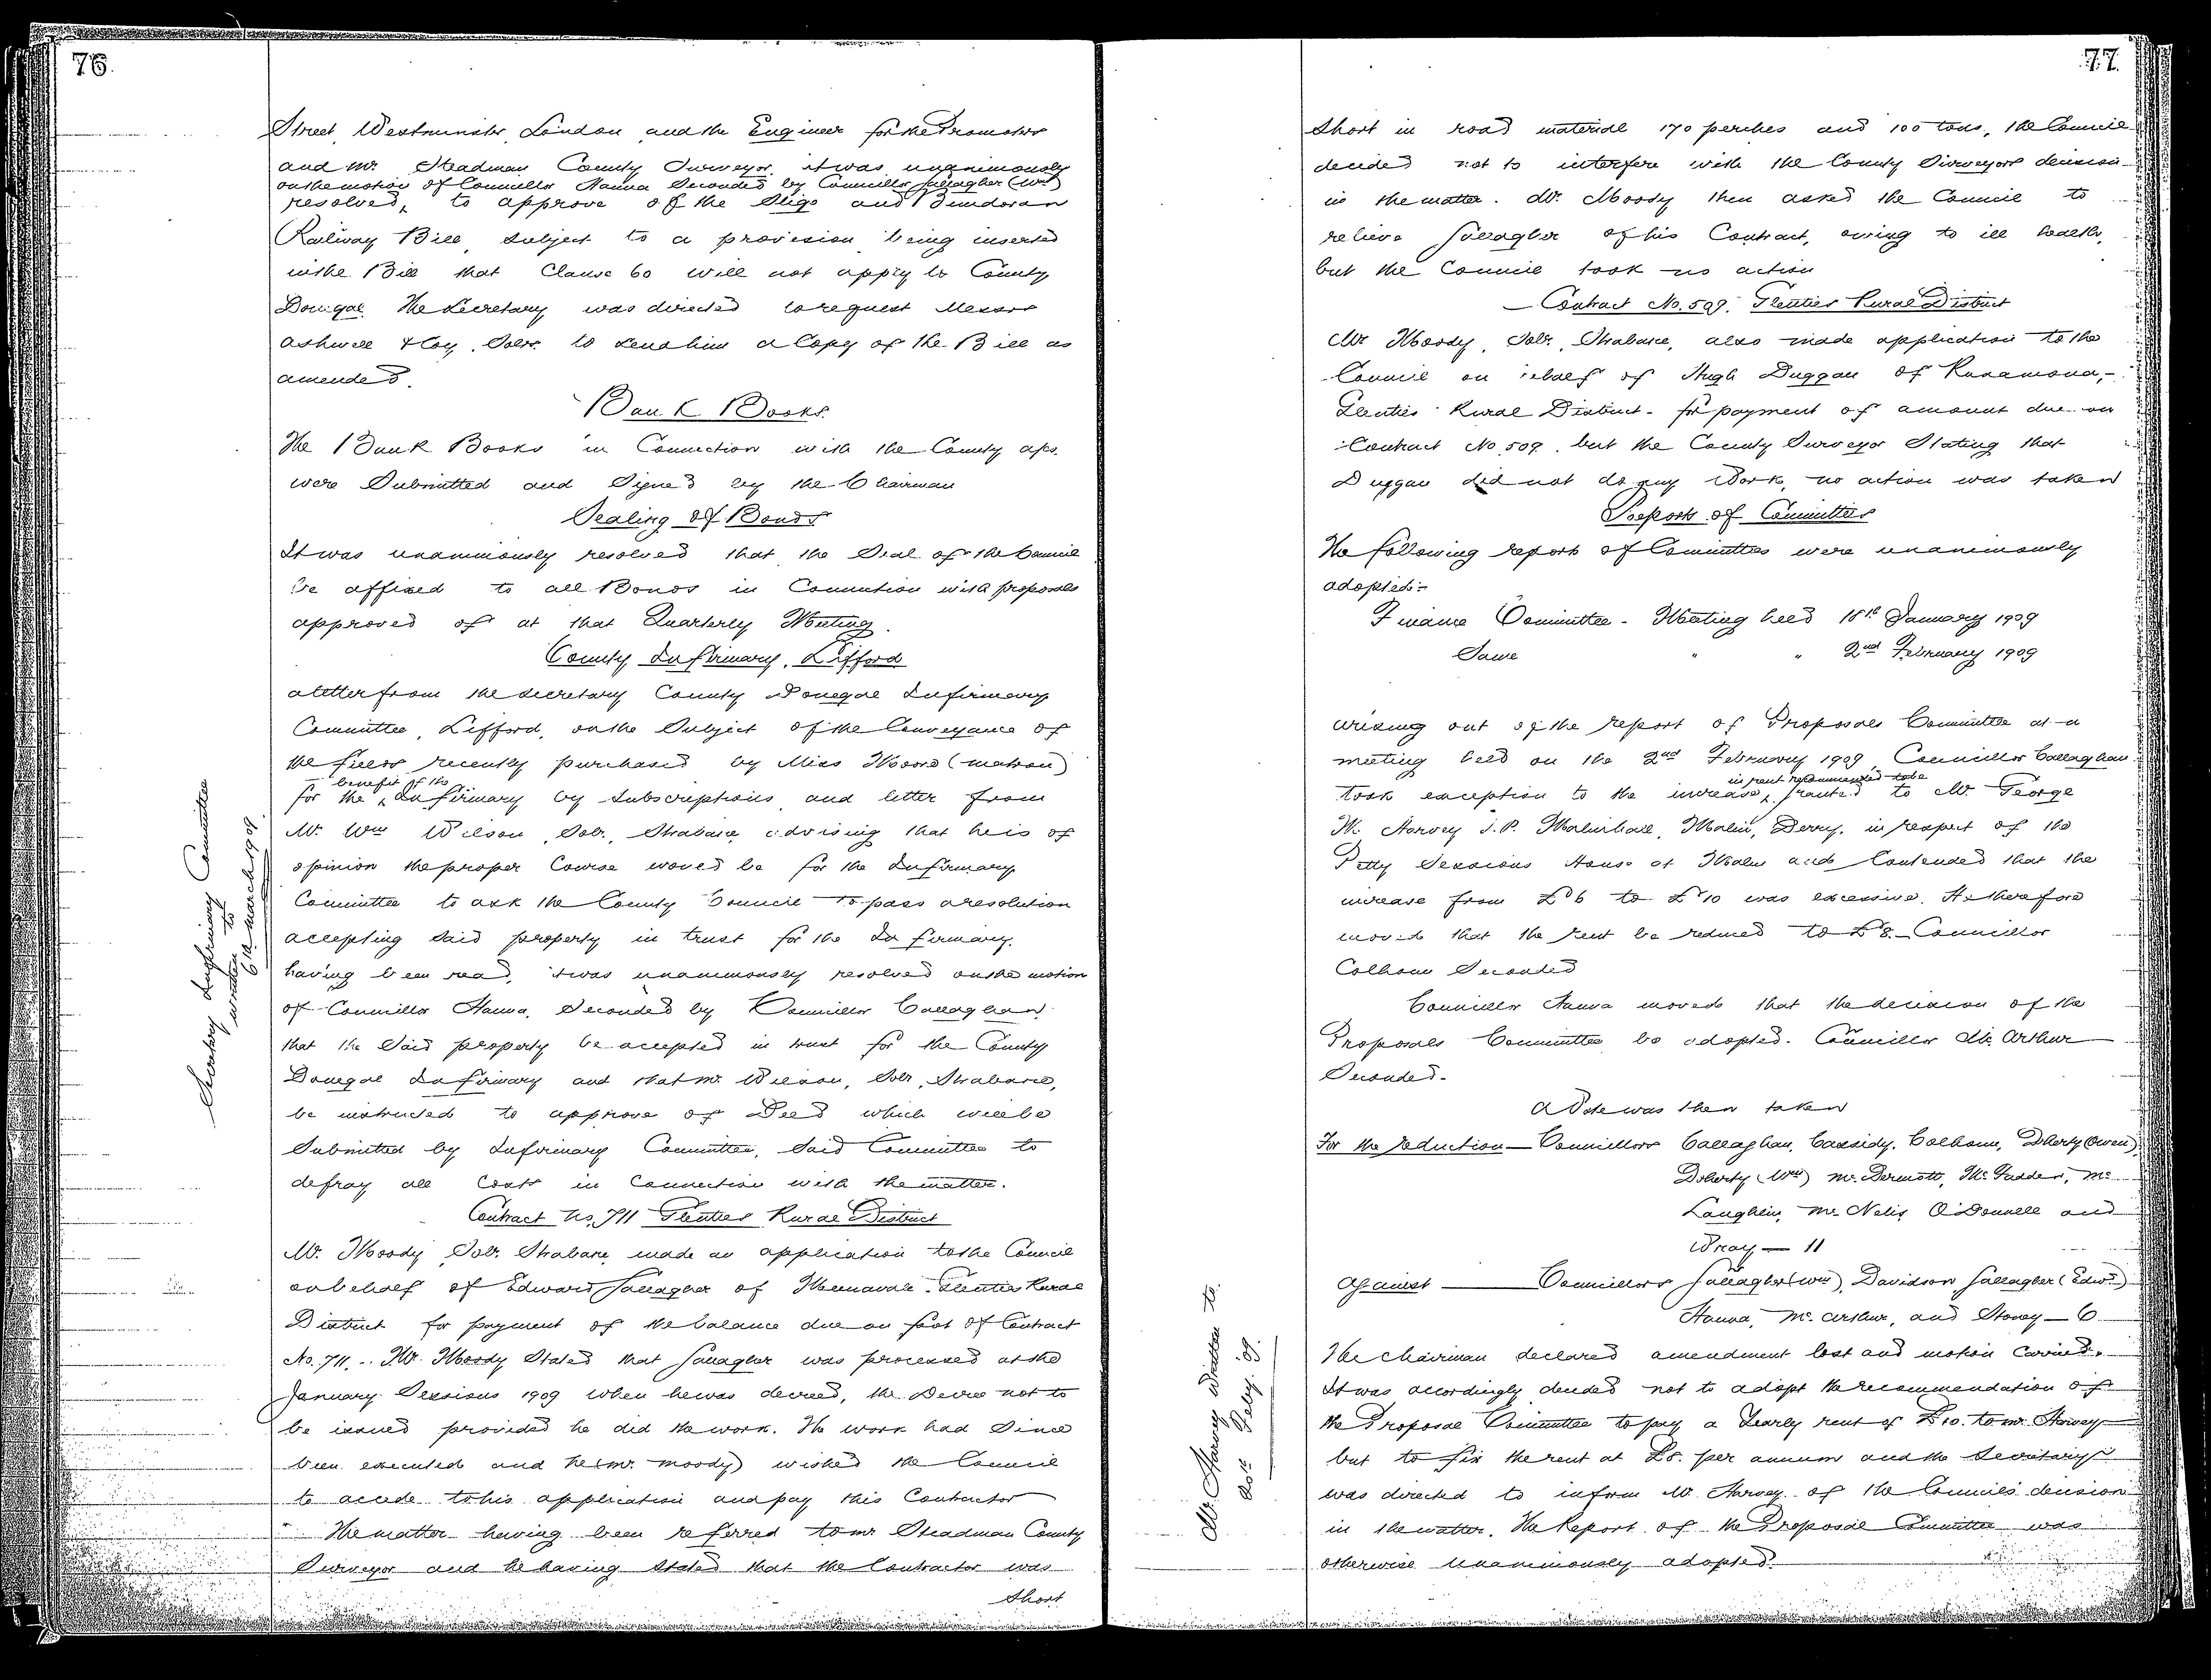 76.
Street, Westminster, London, and the Engineer for the Promoters
and Mr. Steadman County Surveyor, it was unanimously
on the motion of Councillor Hanna Seconded by Councillor Gallagher (Wm)
resolved, to approve of the Sligo and Bundoran
Railway Bill, subject to a provision being inserted
in the Bill that Clause 60 will not apply to County
Donegal. The Secretary was directed to request Messrs
Ashwell & Coy. Solrs. to send him a Copy of the Bill as
amended.
Bank Books.
The Bank Books in Connection with the County a/cs.
were Submitted and Signed by the Chairman
Sealing of Bonds
It was unanimously resolved that the Seal of the Council
be affixed to all Bonds in Connection with proposals
approved of at that Quarterly Meeting.
County Infirmary, Lifford
A letter from the Secretary County Donegal Infirmary
Committee, Lifford, on the Subject of the Conveyance of
the field recently purchased by Miss Moore (matron)
benefit of the
for the Infirmary by Subscriptions and letter from
Mr. Wm Wilson, Solr., Strabane, advising that he is of
opinion the proper Course would be for the Infirmary
Committee to ask the County Council to pass a resolution
accepting said property in trust for the Infirmary,
having been read, it was unanimously resolved on the motion
of Councillor Hanna, Seconded by Councillor Callaghan,
that the Said property be accepted in trust for the County
Donegal Infirmary and that Mr. Wilson, Solr, Strabane,
be instructed to approve of Deed which will be
Submitted by Infirmary Committee, Said Committee to
defray all Costs in Connection with the matter.
Secretary Infirmary Committee
written to
6th March 1909
Contract No. 711 Glenties Rural District
Mr. Moody, Solr. Strabane, made an application to the Council
on behalf of Edward Gallagher of Glenties Rural
District for payment of the balance due on foot of Contract
No. 711. Mr. Moody Stated that Gallagher was processed at the
January Sessions 1909 when he was decreed, the Decree not to
be issued provided he did the work. The work had Since
been executed and he (Mr. Moody) wished the Council
to accede to his application and pay this Contractor
The matter having been referred to Mr Steadman County
Surveyor and he having Stated that the Contractor was
Short
77.
Short in road material 170 perches and 100 tons, the Council
decided not to interfere with the County Surveyors decision
in the matter. Mr. Moody then asked the Council to
relieve Gallagher of his Contract, owing to ill health,
but the Council took no action
Contract No. 509. Glenties Rural District
Mr Moody, Solr. Strabane, also made application to the
Council on behalf of Hugh Duggan of
Glenties Rural District for payment of amount due on
Contract No 509. but the County Surveyor Stating that
Duggan did not do any Work, no action was taken
Reports of Committees
The following reports of Committees were unanimously
adopted:-
Finance Committee - Meeting held 18th January 1909
Same " " 2nd February 1909
Arising out of the report of Proposals Committee at a
meeting held on the 2nd February 1909, Councillor Callaghan
in rent recommended to be
took exception to the increase, granted to Mr. George
M. Harvey J.P. Malinhall, Malin, Derry, in respect of the
Petty Sessions House at Malin and Contended that the
increase from £6 to £10 was excessive. He therefore
moved that the rent be reduced to £8. Councillor
Colhoun Seconded
Councillor Hanna moved that the decision of the
Proposals Committee be adopted. Councillor Mc Arthur
Seconded.
A Vote was then taken
For the reduction — Councillors Callaghan, Cassidy, Colhoun, Doherty (Owen),
Doherty (Wm) McDermott, McFadden, Mc
Laughlin, McNelis, O'Donnell and
Wray — 11
Against — Councillors Gallagher (Wm), Davidson, Gallagher (Edwd)
Hanna, McArthur, and Storey — 6
The Chairman declared amendment lost and motion Carried.
It was accordingly decided not to adopt the recommendation of
the Proposal Committee to pay a Yearly rent of £10. to Mr. Harvey
but to fix the rent at £8. per annum and the Secretary
was directed to inform Mr. Harvey of the Councils decision
in the matter. The Report of the Proposal Committee was
otherwise unanimously adopted.
Mr. Harvey written to